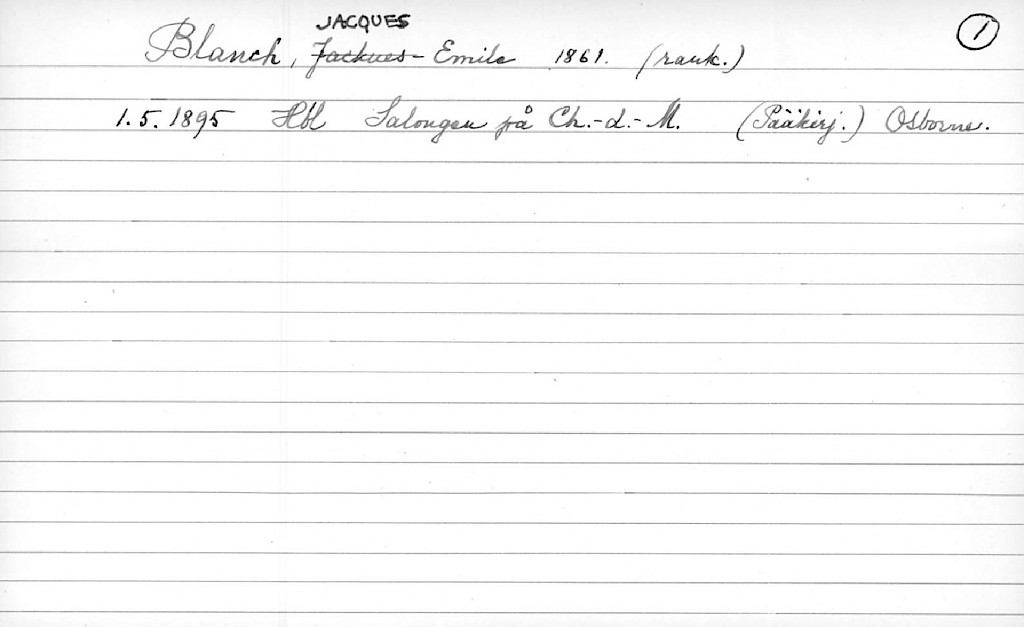 JACQUES
Blanch, Jackues-Emile 1861. (rank.) 1
1.5.1895 Hbl Salongen på Ch.-d.-M. (Pääkirj.) Osborne.